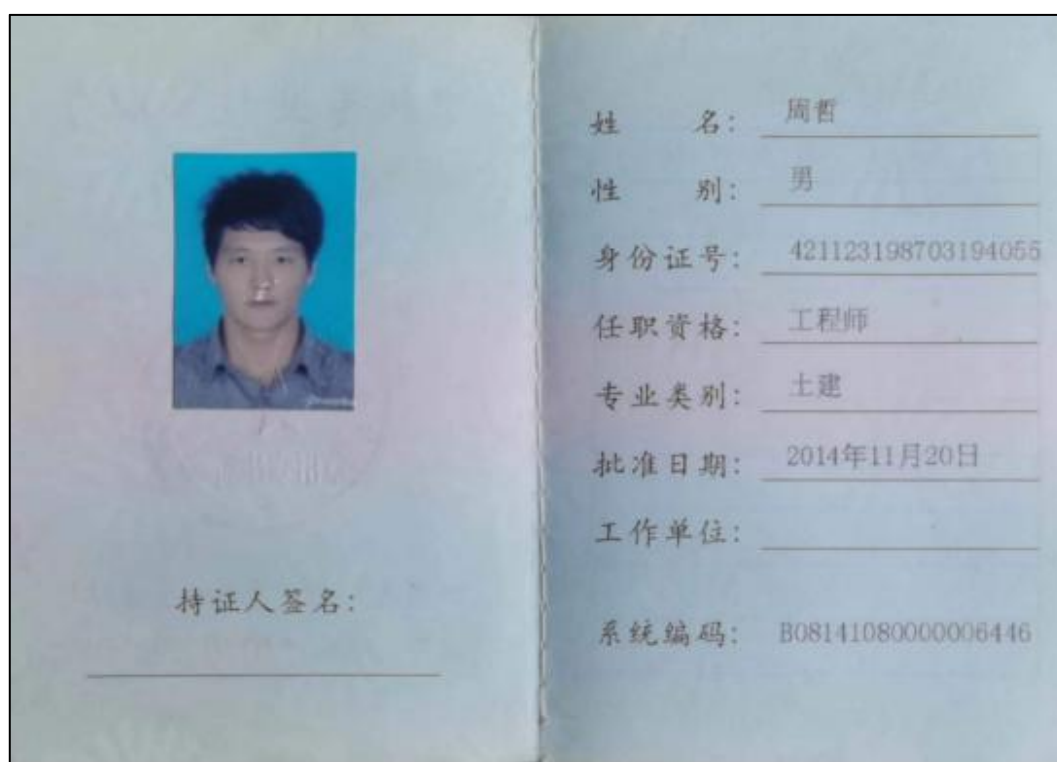 持证人签名:
姓 名: 周哲
性 别: 男
身份证号: 421123198703194055
任职资格: 工程师
专业类别: 土建
批准日期: 2014年11月20日
工作单位:
系统编码: B08141080000006446